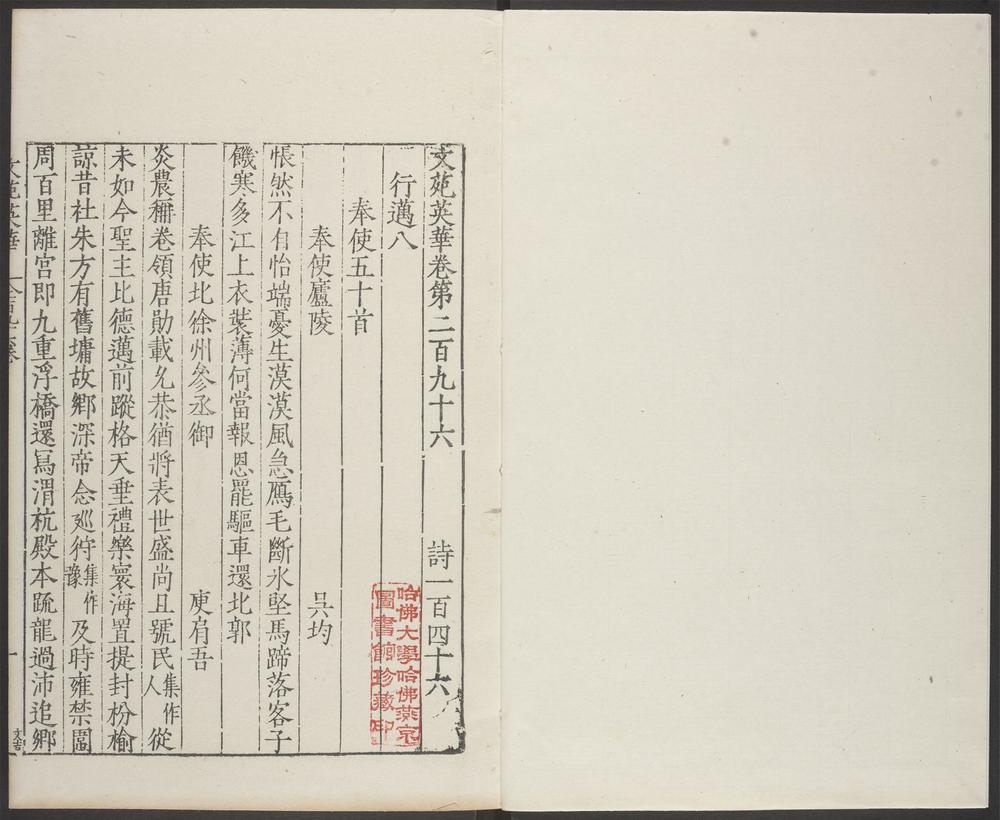 文苑英華卷第二百九十六 詩一百四十六
行邁八
奉使五十首
奉使廬陵 吳均
悵然不自怡端憂生漠漠風急鴈毛斷氷堅馬蹄落客子
饑寒多江上衣裝薄何當報恩罷驅車還北郭
奉使北徐州參丞御 庾肩吾
炎農稱卷領唐勛載允恭猶將表世盛尚且號民集作人從
未如今聖主比德邁前蹤格天垂禮樂寰海置提封枌榆
諒昔社朱方有舊墉故鄉深帝念廵狩集作豫及時雍禁闈
周百里離宮即九重浮橋還冩渭杭殿本疏龍過沛追鄉
文苑英華
一
哈佛大學哈佛燕京
圖書館珍藏印